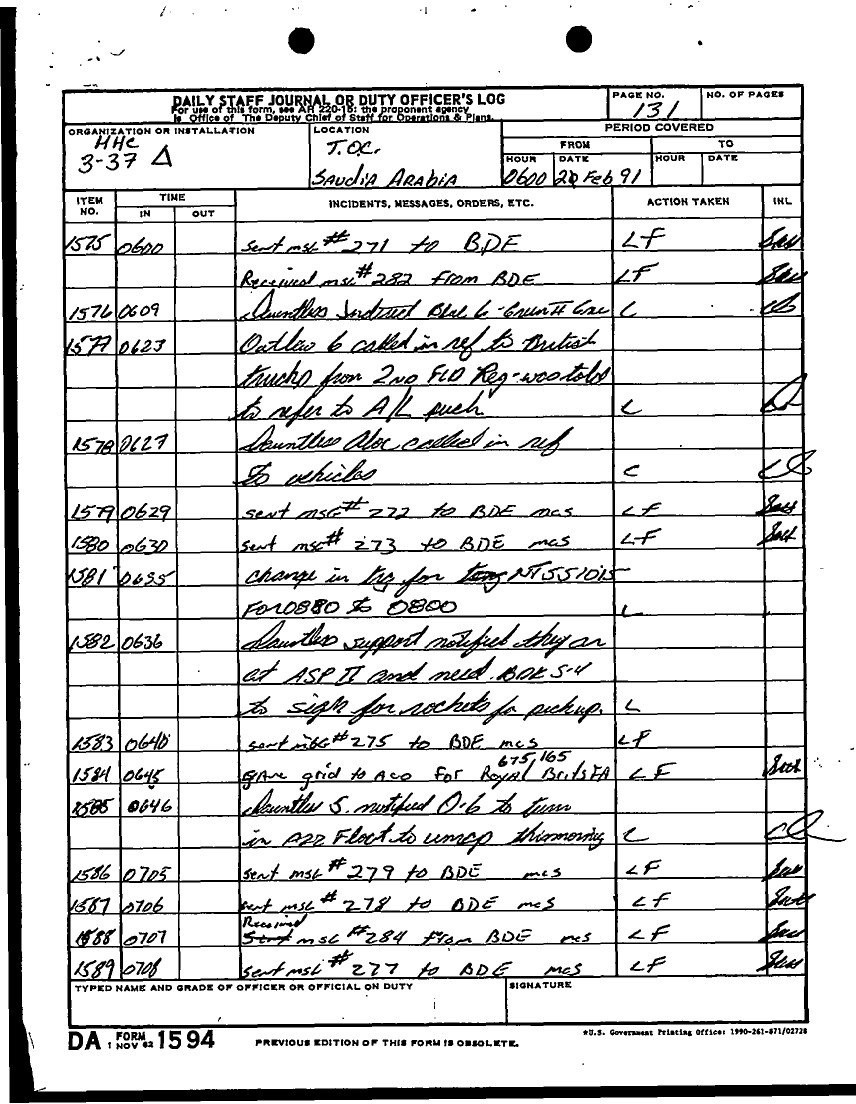 DAILY STAFF JOURNAL OR DUTY OFFICER'S LOG
For use of this form, see AR 220-15: the proponent agency
is Office of The Deputy Chief of Staff for Operations & Plans.
PAGE NO.
131
NO. OF PAGES
ORGANIZATION OR INSTALLATION
HHC
3-37 Δ
LOCATION
T.O.C.
SAUDIA ARABIA
PERIOD COVERED
FROM TO
HOUR DATE HOUR DATE
0600 Feb 91
ITEM NO. TIME INCIDENTS, MESSAGES, ORDERS, ETC. ACTION TAKEN INL
IN OUT
1575 0600 sent msg # 271 to BDE LF
Received msg # 282 from BDE LF
1576 0609 Dauntless Blue 6 - L
1577 0623 Outlaw 6 called in ref to British
trucks from 2nd FLD Reg - was told
to refer to A/L push L
1578 0627 Dauntless Aloc called in ref
to vehicles C
1579 0629 sent msg # 272 to BDE mcs LF
1580 0630 sent msg # 273 to BDE mcs LF
1581 0635 change in trg for NT551015
For 0880 to 0800 L
1582 0636 Dauntless support notified they are
at ASP II and need BDE S-4
to sign for rockets for pickup. L
1583 0640 sent msg # 275 to BDE mcs LF
1584 0645 gave grid to Aco For Royal Brits FA 675,165 LF
1585 0646 Dauntless S. notified O-6 to turn
in to umcp this morning L
1586 0705 sent msg # 279 to BDE mcs LF
1587 0706 sent msg # 278 to BDE mcs LF
1588 0707 Received msg # 284 from BDE mcs LF
1589 0708 sent msg # 277 to BDE mcs LF
TYPED NAME AND GRADE OF OFFICER OR OFFICIAL ON DUTY
SIGNATURE
DA FORM 1594
1 NOV 62
PREVIOUS EDITION OF THIS FORM IS OBSOLETE.
*U.S. Government Printing Office: 1990-261-871/02728